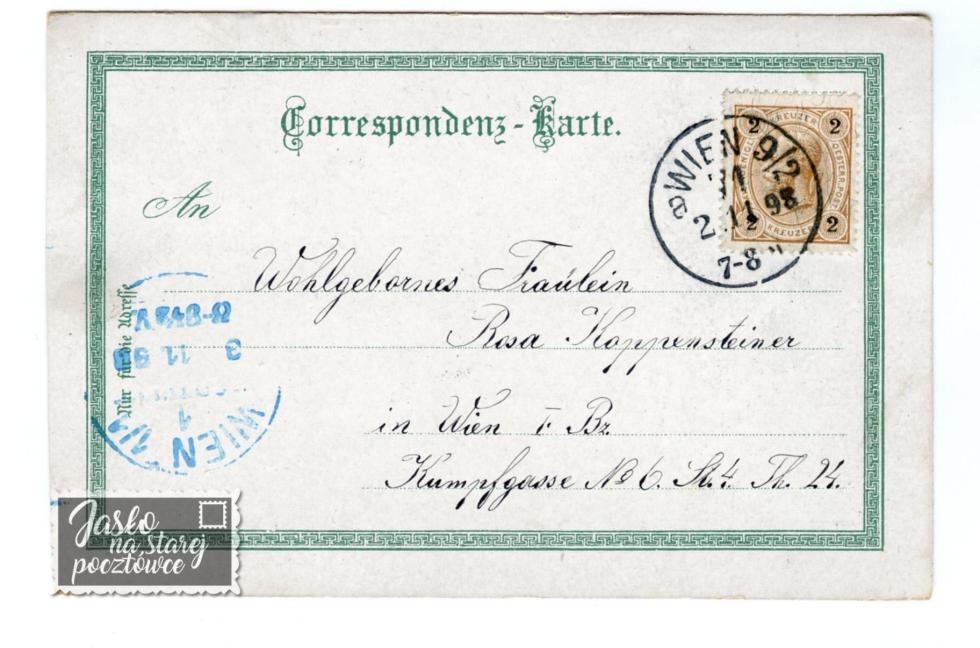 Correspondenz-Karte.
2 KREUZER 2
2 KREUZER 2
WIEN 9/2
2.11 98
7-8
An
Wohlgebornes Fräulein
Rosa Koppensteiner
in Wien I Bz.
Kumpfgasse No 6. St. 4. Th. 24.
Nur für die Adresse
WIEN
1
3 11 98
8-9½V
Jasło
na starej
pocztówce